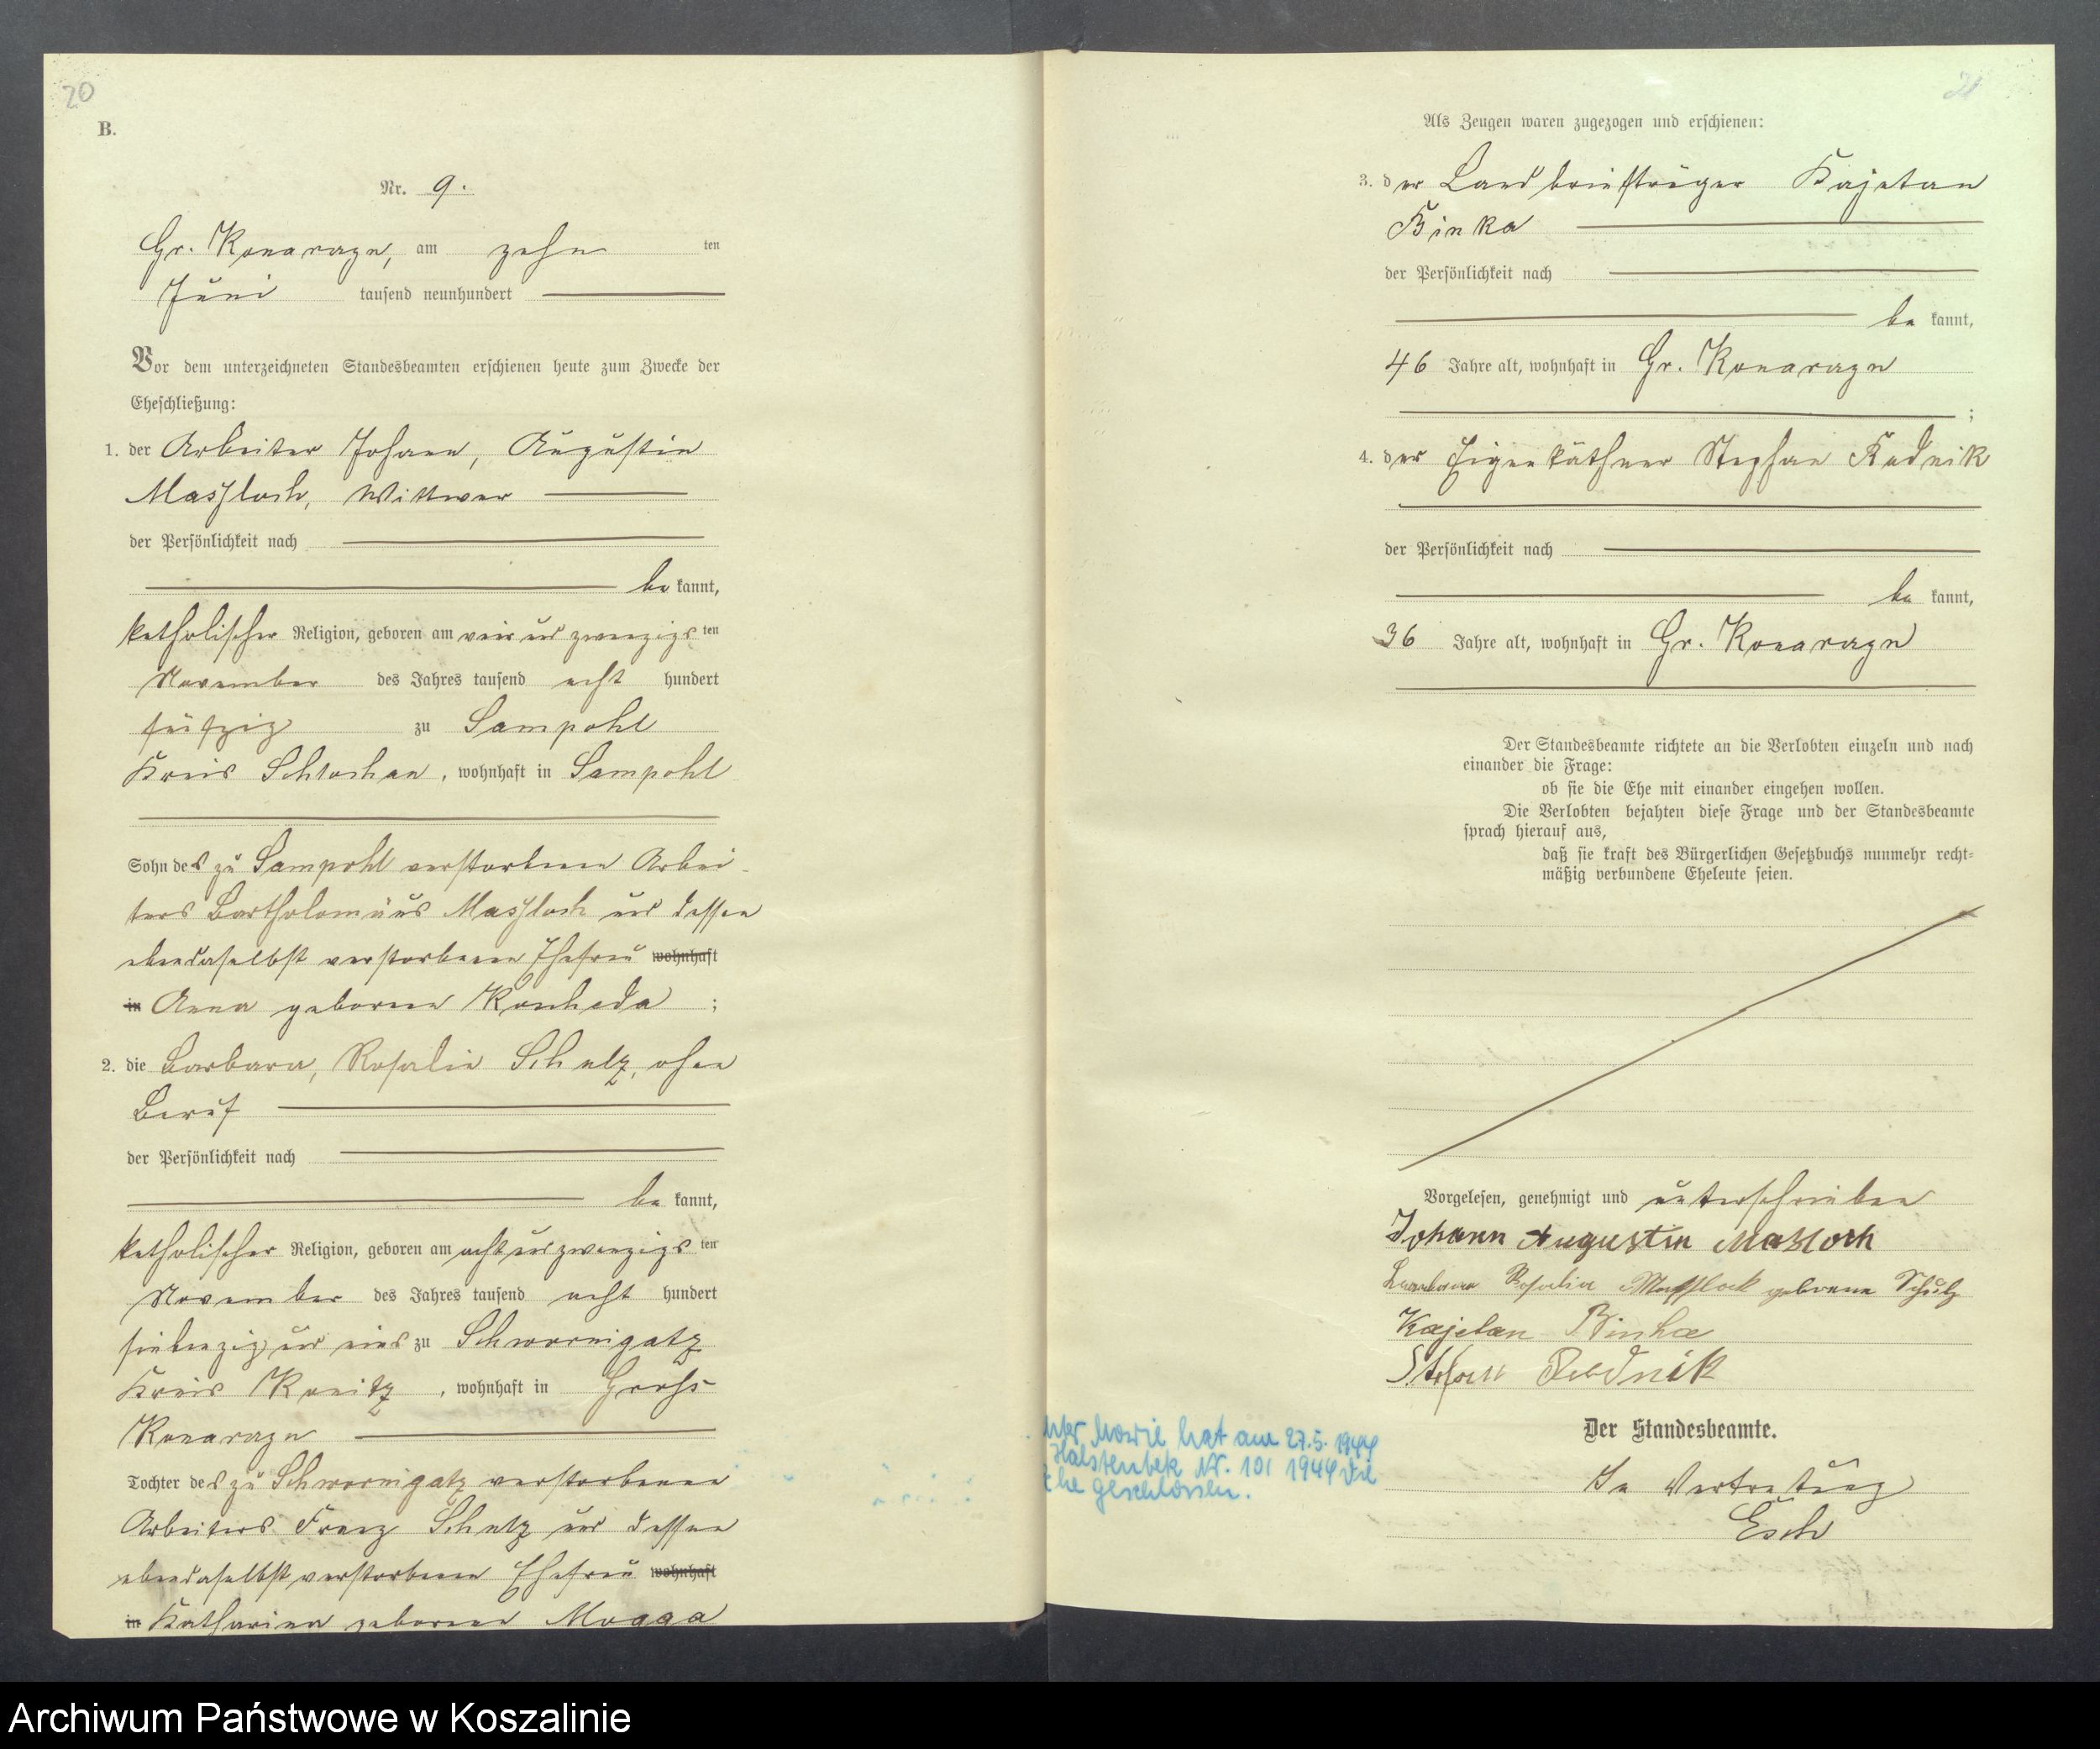 20
B.
Nr. 9.
Gr. Konarzyn, am zehn ten
Juni tausend neunhundert
Vor dem unterzeichneten Standesbeamten erschienen heute zum Zwecke der
Eheschließung:
1. der Arbeiter Johann, Augustin
Masloch, Wittwer
der Persönlichkeit nach
be kannt,
katholischer Religion, geboren am vier und zwanzigs ten
November des Jahres tausend acht hundert
fünfzig zu Sampohl
Kreis Schlochau, wohnhaft in Sampohl
Sohn des zu Sampohl verstorbenen Arbei-
ters Bartholomäus und dessen
ebendaselbst verstorbenen Ehefrau wohnhaft
in Anna geborene ;
2. die Barbara, Rosalie Schulz, ohne
Beruf
der Persönlichkeit nach
be kannt,
katholischer Religion, geboren am acht und zwanzigs ten
November des Jahres tausend acht hundert
siebenzig und eins zu Schwornigatz
Kreis Konitz, wohnhaft in Gross
Konarzyn
Tochter des zu Schwornigatz verstorbenen
Arbeiters Franz Schulz und dessen
ebendaselbst verstorbenen Ehefrau wohnhaft
in Katharina geborene
Als Zeugen waren zugezogen und erschienen:
3. der Landbriefträger Kajetan
Binka
der Persönlichkeit nach
be kannt,
46 Jahre alt, wohnhaft in Gr. Konarzyn
;
4. der Eigenkäthner Stephan Rudnik
der Persönlichkeit nach
be kannt,
36 Jahre alt, wohnhaft in Gr. Konarzyn
Der Standesbeamte richtete an die Verlobten einzeln und nach
einander die Frage:
ob sie die Ehe mit einander eingehen wollen.
Die Verlobten bejahten diese Frage und der Standesbeamte
sprach hierauf aus,
daß sie kraft des Bürgerlichen Gesetzbuchs nunmehr recht-
mäßig verbundene Eheleute seien.
Vorgelesen, genehmigt und unterschrieben
Johann Augustin
Barbara Rosalia geborene Schulz
Kajetan Binka
Stefan Rudnik
Der Standesbeamte.
In Vertretung
Esch
Marie hat am 27.5. 1944
Halstenbek Nr. 101 1944 die
Ehe geschlossen.
Archiwum Państwowe w Koszalinie